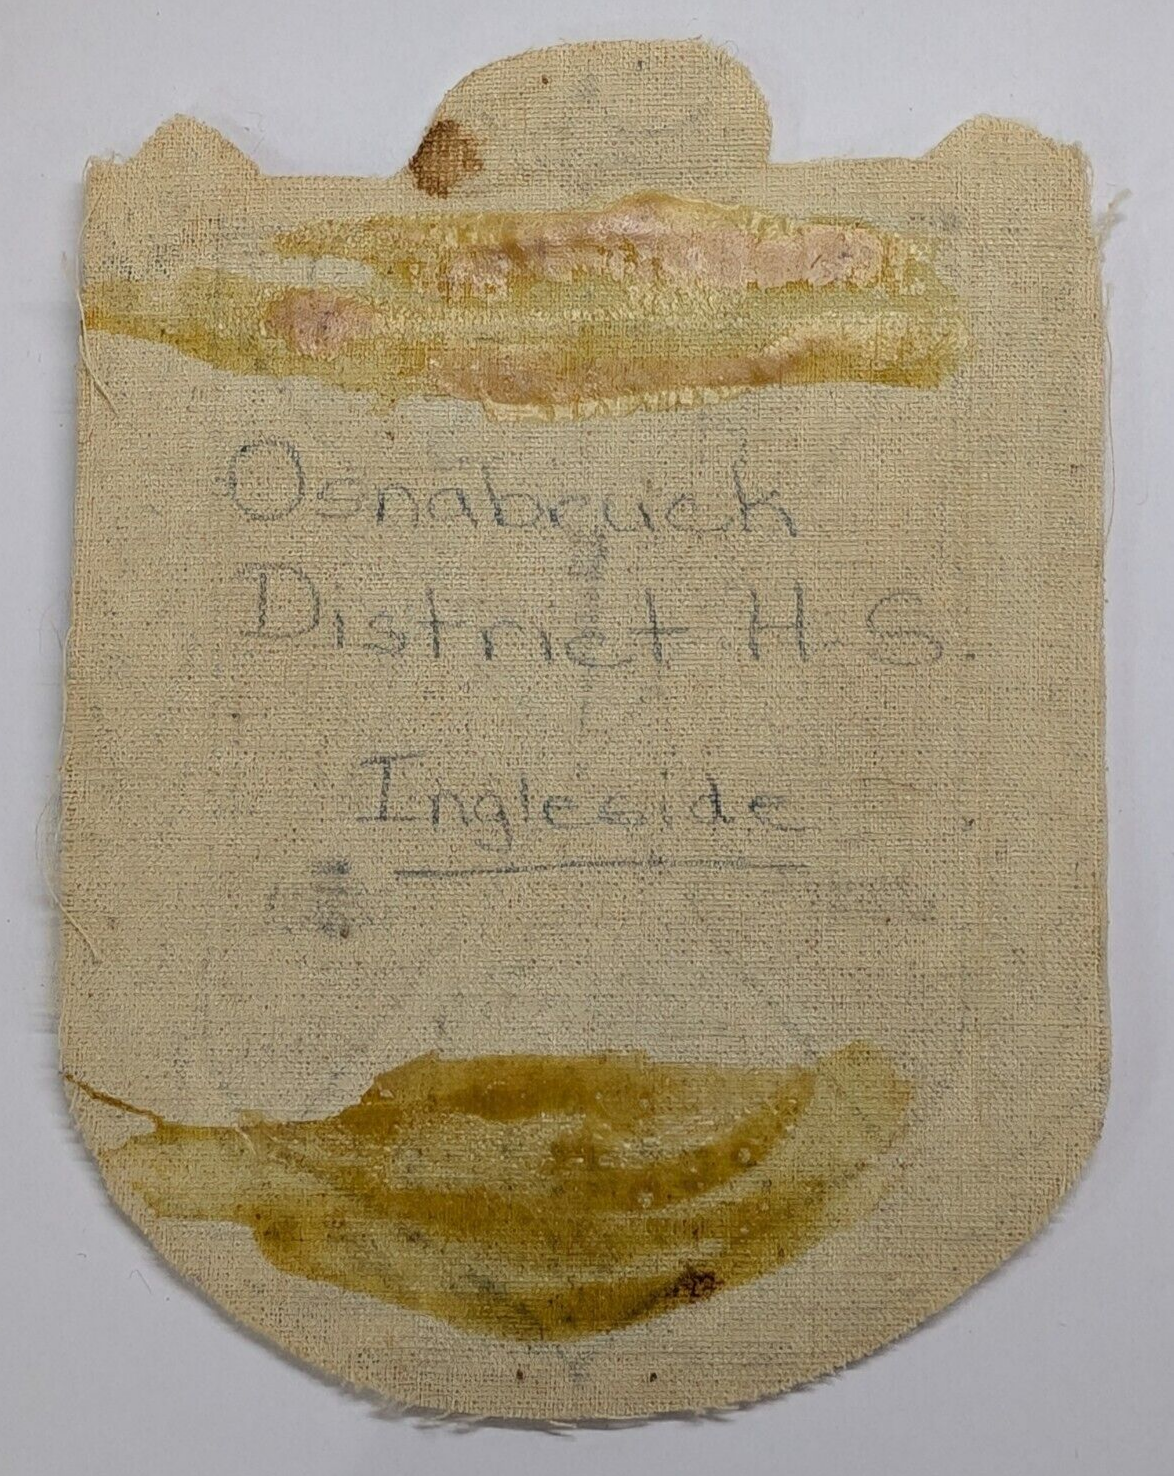 Osnabruck
District H.S.
Ingleside